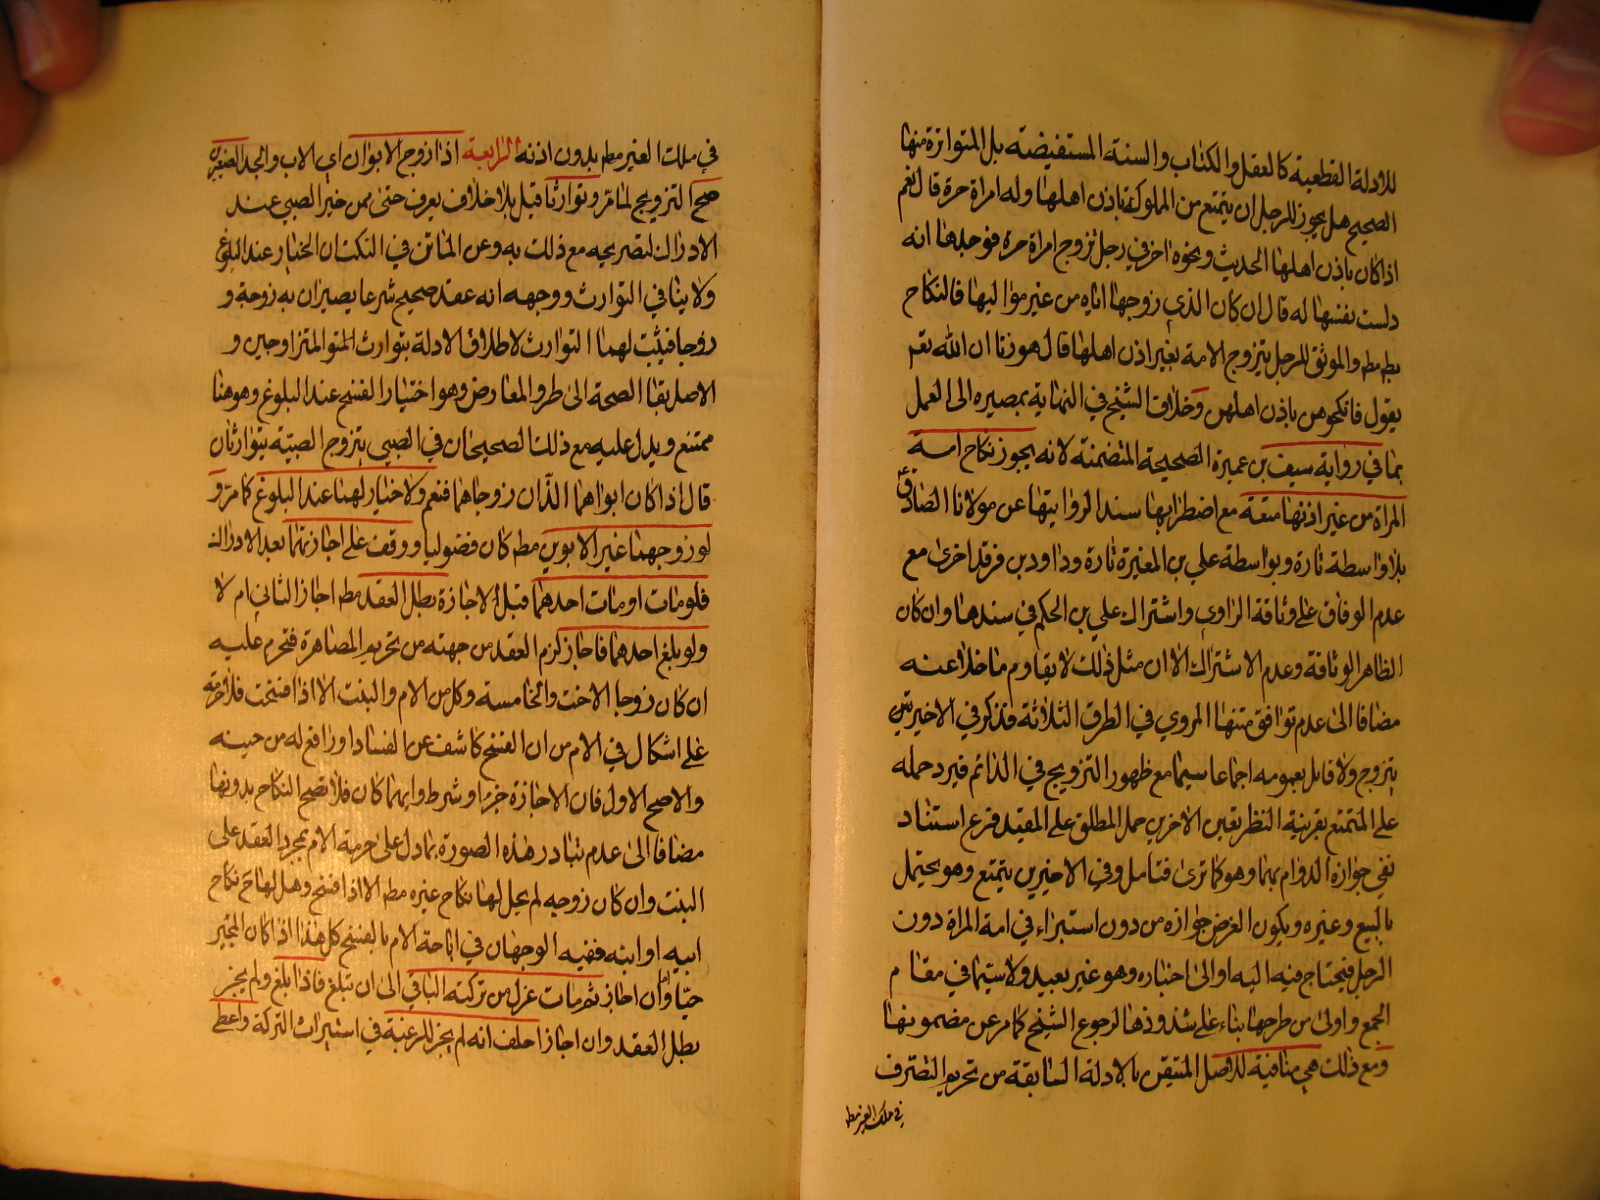 للادلة القطعية كالعقل والكتاب والسنة المستفيضة بل المتواترة منها
الصحيح هل يجوز للرجل ان يتمتع من المملوكة باذن اهلها وله امراة حرة قال نعم
اذا كان باذن اهلها الحديث ونحوه اخر في رجل تزوج امراة حرة فوجدها انه
دلست نفسها له قال ان كان الذي زوجها اياه من غير مواليها فالنكاح
بط مط والموثق للرجل يتزوج الامة بغير اذن اهلها قال هو زنا ان الله تعم
يقول فانكحوهن باذن اهلهن وخلاف الشيخ في النهاية بمصيره الى العمل
بما في رواية سيف بن عميرة الصحيحة المتضمنة لانه يجوز نكاح امة
المراة من غير اذنها متعة مع اضطرابها سندا لروايتها عن مولانا الصادق ع
بلا واسطة تارة وبواسطة علي بن المغيرة تارة وداود بن فرقد اخرى مع
عدم الوفاق على وثاقة الراوي واشتراك علي بن الحكم في سندها وان كان
الظاهر الوثاقة وعدم الاشتراك الا ان مثل ذلك لا يقاوم ما خلا عنه
مضافا الى عدم توافق متنها المروي في الطرق الثلاثة فذكر في الاخيرتين
يتزوج ولا قايل بعمومه اجماعا سيما مع ظهور التزويج في الدائم فيرد حمله
على المتمتع بقرينة النظر بعين الاخرين حمل المطلق على المقيد فرع استناد
نفي جوازه الدوام بهما وهو كما ترى فتامل وفي الاخيرين يتمتع وهو يحتمل
بالبيع وغيره ويكون الغرض جوازه من دون استبراء في امة المراة دون
الرجل فيحتاج فيه اليه او الى اخباره وهو غير بعيد ولا سيما في مقام
الجمع واولى من طرحها بناء على شذوذها لرجوع الشيخ كما مر عن مضمونها
ومع ذلك هي منافية للاصل المتيقن بالادلة السابقة من تحريم التصرف
في ملك الغير مط
في ملك الغير مط بدون اذنه الرابعة اذا زوج الابوان اي الاب والجد الصغيرين
صح التزويج لما مر وتوارثا قيل بلا خلاف يعرف حتى ممن خير الصبي عند
الادراك لتصريحه مع ذلك به وعن الماتن في النكت ان الخيار عند البلوغ
ولا ينافي التوارث ووجهه انه عقد صحيح شرعا يصيران به زوجة و
زوجا فيثبت لهما التوارث لاطلاق الادلة بتوارث المتزاوجين و
الاصل بقاء الصحة الى طرو المعارض وهو اختيار الفسخ عند البلوغ وهو هنا
ممتنع ويدل عليه مع ذلك الصحيحان في الصبي يتزوج الصبية يتوارثان
قال اذا كان ابواهما اللذان زوجاهما فنعم ولا خيار لهما عند البلوغ كما مر و
لو زوجهما غير الابوين مط كان فضوليا ووقف على اجازتهما بعد الادراك
فلو ماتا او مات احدهما قبل الاجازة بطل العقد مط اجاز الثاني ام لا
ولو بلغ احدهما فاجاز لزم العقد من جهته من تحريم المصاهرة فتحرم عليه
ان كان زوجا الاخت والخامسة وكل من الام والبنت الا اذا فسخت فلا حرمة
على اشكال في الام من ان الفسخ كاشف عن الفساد او رافع له من حينه
والاصح الاول فان الاجازة جزء او شرط وايهما كان فلا تصح النكاح بدونها
مضافا الى عدم تبادر هذه الصورة بما دل على حرمة الام بمجرد العقد على
البنت وان كان زوجه لم يحل لها نكاح غيره مط الا اذا فسخ وهل لها ح نكاح
ابيه او ابنه ففيه الوجهان في اباحة الام بالفسخ كل هذا اذا كان المجيز
حيا واما ان اجاز ثم مات عزل من تركته الباقي الى ان يبلغ فاذا بلغ ولم يجز
بطل العقد وان اجاز احلف انه لم يجز للرغبة في الميراث التركة واعطي